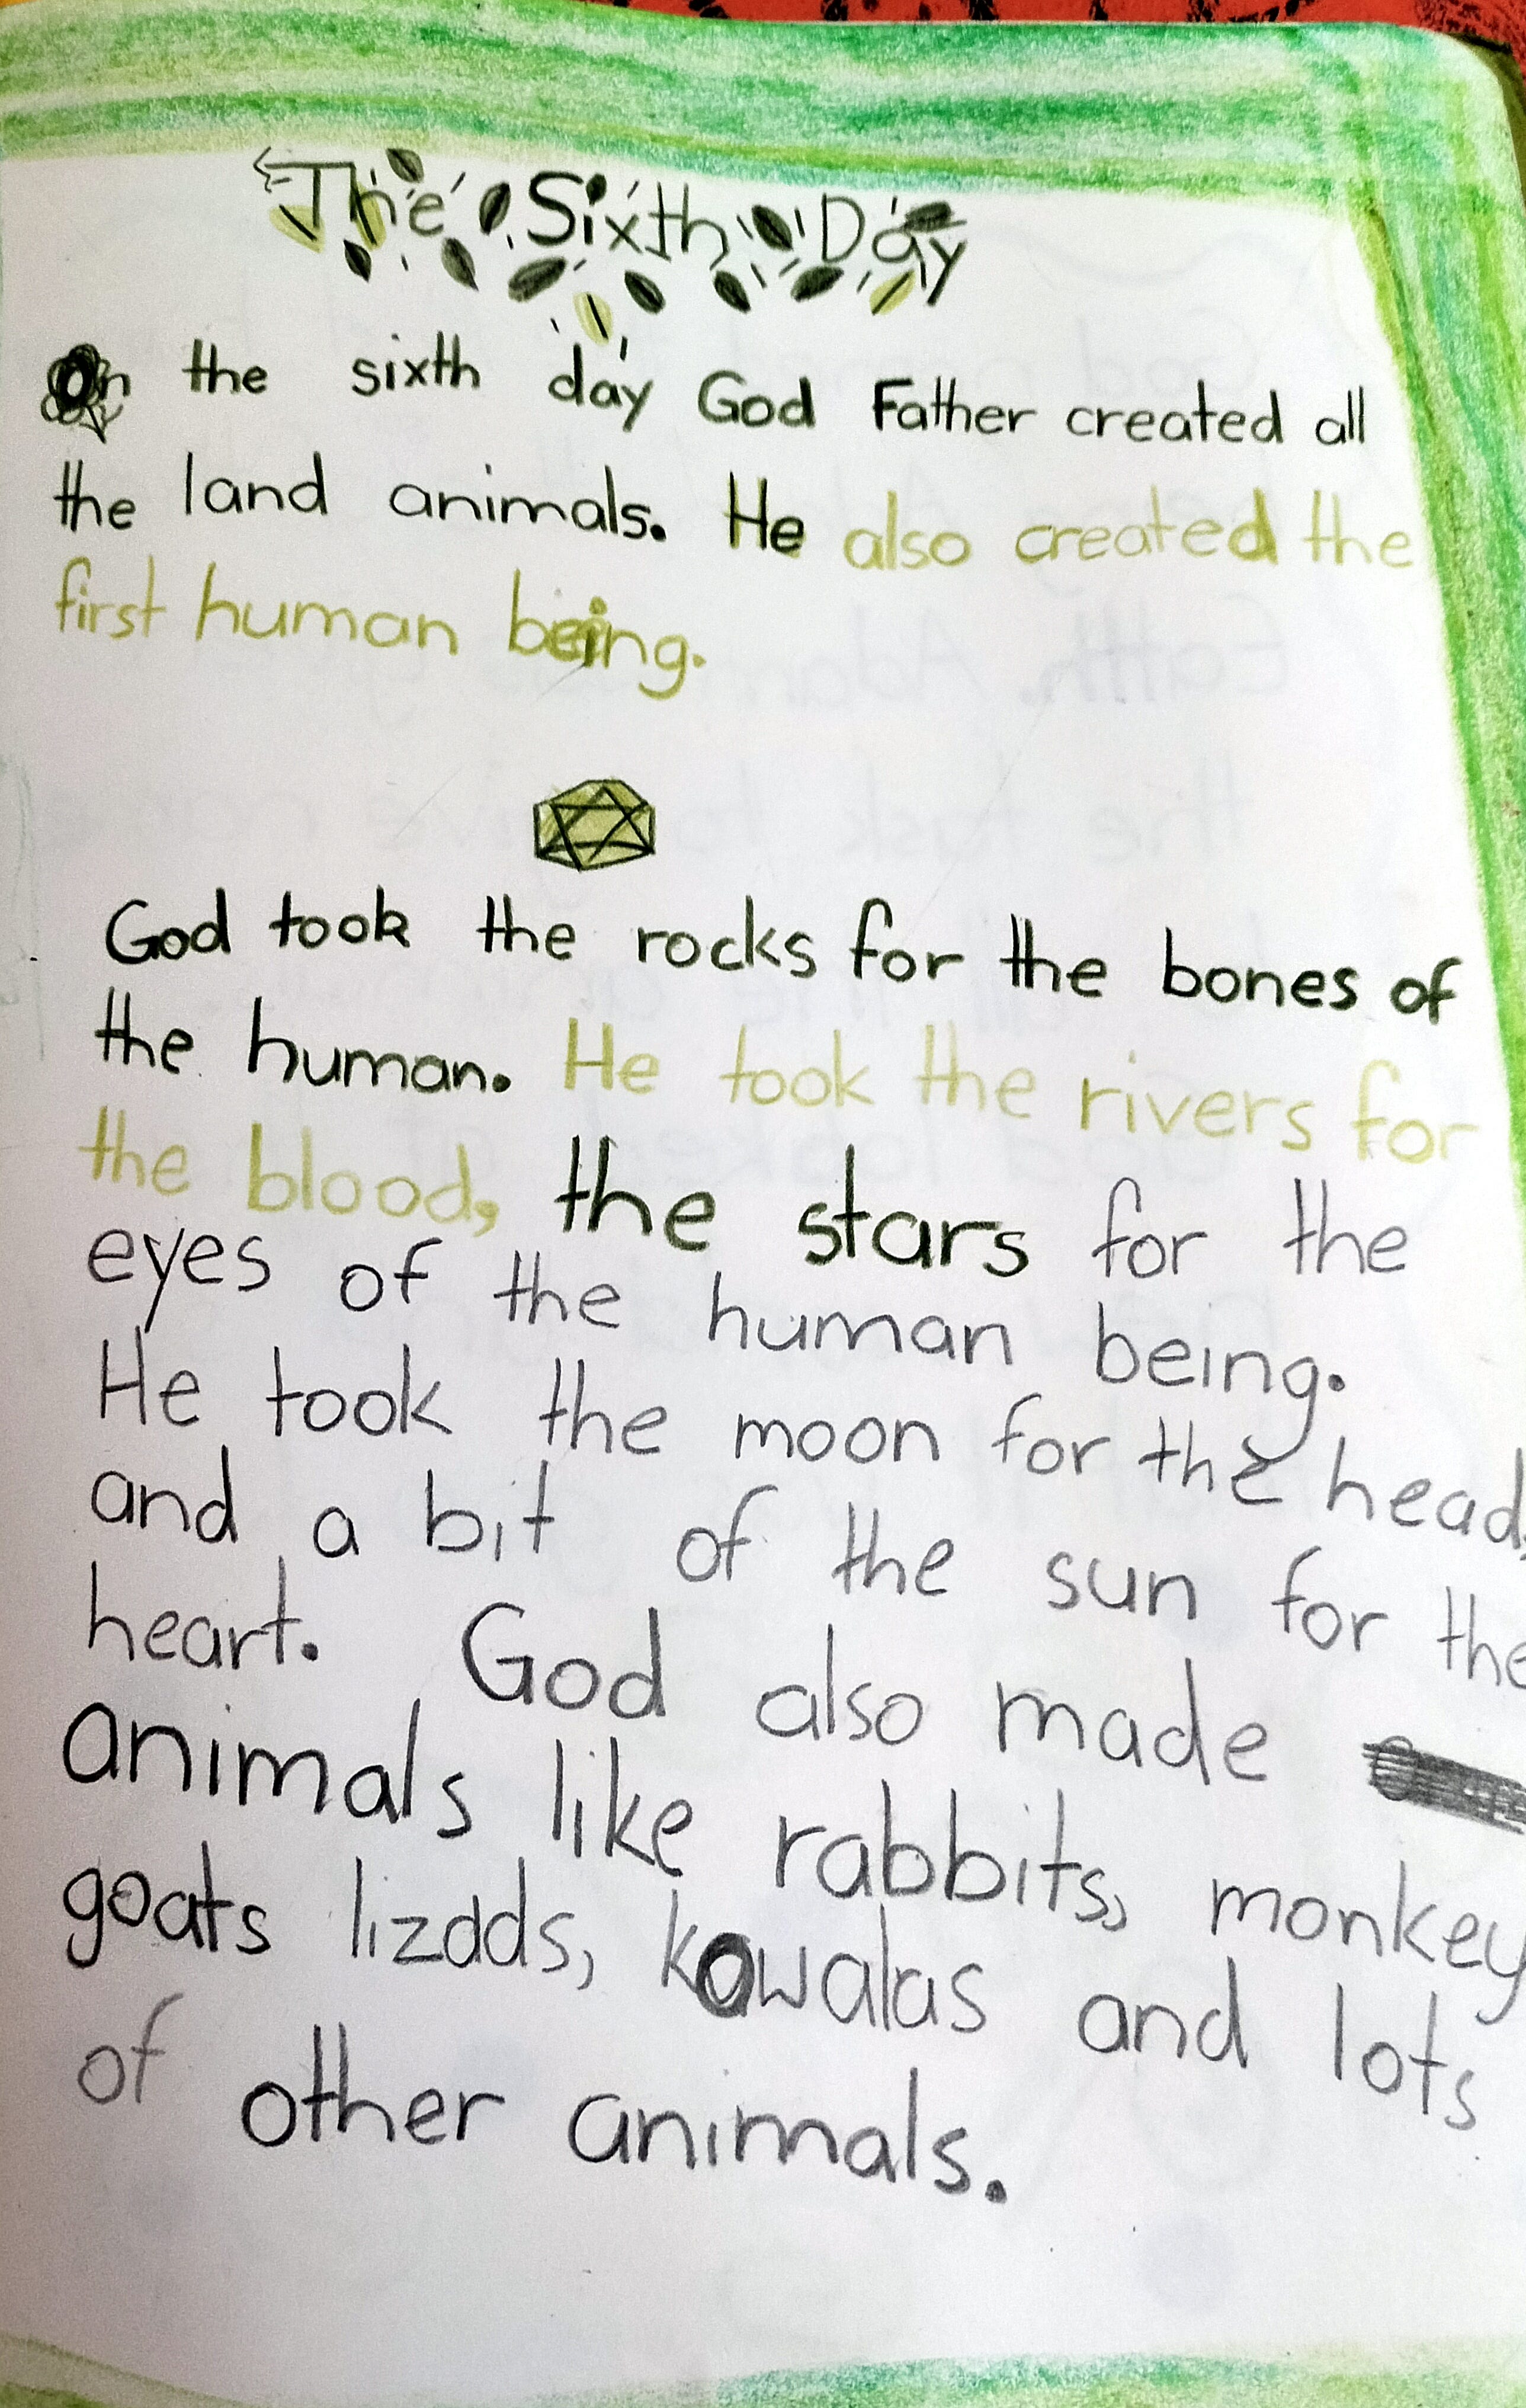 The Sixth Day
On the sixth day God Father created all
the land animals. He also created the
first human being.
God took the rocks for the bones of
the human. He took the rivers for
the blood, the stars for the
eyes of the human being.
He took the moon for the head,
and a bit of the sun for the
heart. God also made
animals like rabbits, monkey
goats lizdds, kowalas and lots
of other animals.